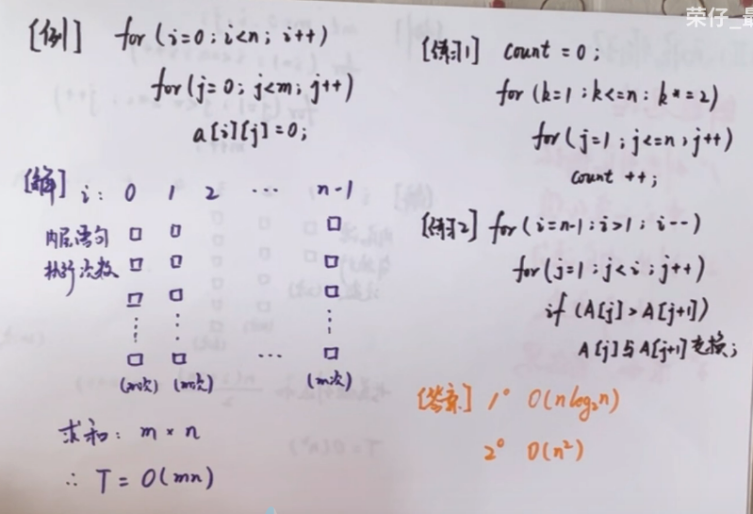 荣仔_最
[例] for(i=0; i<n; i++)
for(j=0; j<m; j++)
a[i][j]=0;
[解] i: 0 1 2 ... n-1
内层语句
执行次数
(m次) (m次) ... (m次)
求和: m×n
∴ T = O(mn)
[练习1] count = 0;
for(k=1; k<=n; k*=2)
for(j=1; j<=n; j++)
count ++;
[练习2] for(i=n-1; i>1; i--)
for(j=1; j<i; j++)
if (A[j]>A[j+1])
A[j]与A[j+1]交换;
[答案] 1° O(nlog₂n)
2° O(n²)